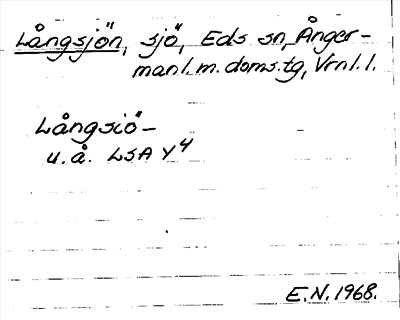 Långsjön, sjö, Eds sn, Ånger-
manl. m. doms.tg, Vrnl. l.
Långsiö-
u.å. LSA Y4
E.N. 1968.